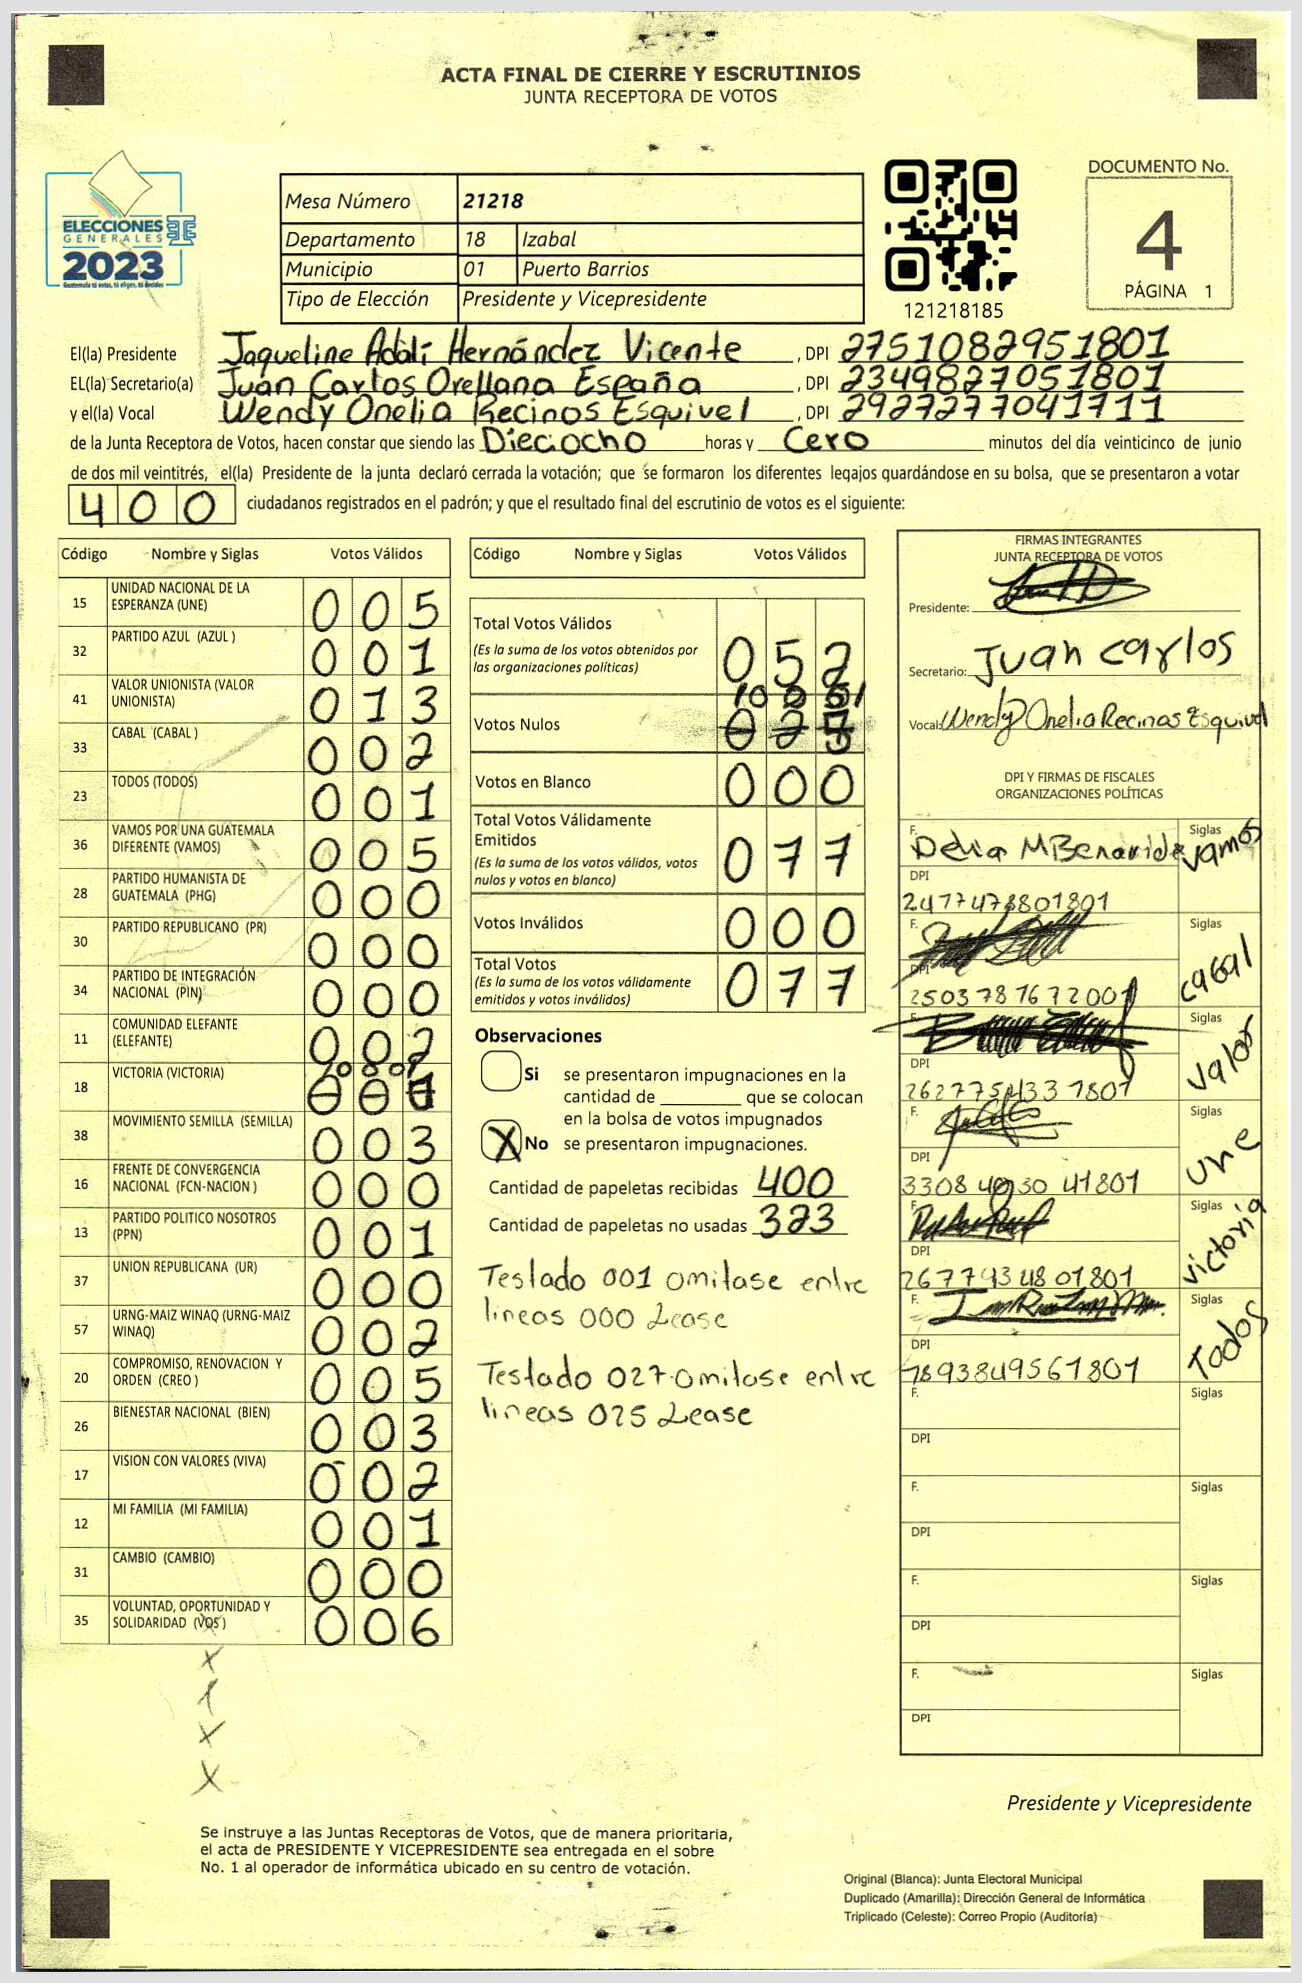 ACTA FINAL DE CIERRE Y ESCRUTINIOS
JUNTA RECEPTORA DE VOTOS
ELECCIONES
GENERALES
2023
Guatemala tú votas, tú eliges, tú decides
Mesa Número 21218
Departamento 18 Izabal
Municipio 01 Puerto Barrios
Tipo de Elección Presidente y Vicepresidente
121218185
DOCUMENTO No.
4
PÁGINA 1
El(la) Presidente Jaqueline Adalí Hernández Vicente, DPI 2751082951801
EL(la) Secretario(a) Juan Carlos Orellana España, DPI 2349827051801
y el(la) Vocal Wendy Onelia Recinos Esquivel, DPI 2927277041711
de la Junta Receptora de Votos, hacen constar que siendo las Dieciocho horas y Cero minutos del día veinticinco de junio
de dos mil veintitrés, el(la) Presidente de la junta declaró cerrada la votación; que se formaron los diferentes legajos guardándose en su bolsa, que se presentaron a votar
400 ciudadanos registrados en el padrón; y que el resultado final del escrutinio de votos es el siguiente:
Código Nombre y Siglas Votos Válidos
15 UNIDAD NACIONAL DE LA ESPERANZA (UNE) 005
32 PARTIDO AZUL (AZUL ) 001
41 VALOR UNIONISTA (VALOR UNIONISTA) 013
33 CABAL (CABAL ) 002
23 TODOS (TODOS) 001
36 VAMOS POR UNA GUATEMALA DIFERENTE (VAMOS) 005
28 PARTIDO HUMANISTA DE GUATEMALA (PHG) 000
30 PARTIDO REPUBLICANO (PR) 000
34 PARTIDO DE INTEGRACIÓN NACIONAL (PIN) 000
11 COMUNIDAD ELEFANTE (ELEFANTE) 002
18 VICTORIA (VICTORIA) 001
38 MOVIMIENTO SEMILLA (SEMILLA) 003
16 FRENTE DE CONVERGENCIA NACIONAL (FCN-NACION ) 000
13 PARTIDO POLITICO NOSOTROS (PPN) 001
37 UNION REPUBLICANA (UR) 000
57 URNG-MAIZ WINAQ (URNG-MAIZ WINAQ) 002
20 COMPROMISO, RENOVACION Y ORDEN (CREO ) 005
26 BIENESTAR NACIONAL (BIEN) 003
17 VISION CON VALORES (VIVA) 002
12 MI FAMILIA (MI FAMILIA) 001
31 CAMBIO (CAMBIO) 000
35 VOLUNTAD, OPORTUNIDAD Y SOLIDARIDAD (VOS ) 006
Código Nombre y Siglas Votos Válidos
Total Votos Válidos 052
(Es la suma de los votos obtenidos por
las organizaciones políticas)
Votos Nulos
Votos en Blanco 000
Total Votos Válidamente
Emitidos 077
(Es la suma de los votos válidos, votos
nulos y votos en blanco)
Votos Inválidos 000
Total Votos 077
(Es la suma de los votos válidamente
emitidos y votos inválidos)
Observaciones
Si se presentaron impugnaciones en la
cantidad de ________ que se colocan
en la bolsa de votos impugnados
X No se presentaron impugnaciones.
Cantidad de papeletas recibidas 400
Cantidad de papeletas no usadas 323
Testado 001 omitase entre
lineas 000 Lease
Testado 027 omitase entre
lineas 025 Lease
FIRMAS INTEGRANTES
JUNTA RECEPTORA DE VOTOS
Presidente:
Secretario: Juan Carlos
Vocal: Wendy Onelia Recinos Esquivel
DPI Y FIRMAS DE FISCALES
ORGANIZACIONES POLÍTICAS
F. Siglas Vamos
DPI
2477478801801
F. Siglas Cabal
DPI
2503787672001
F. Siglas Valor
DPI
F. Siglas Une
DPI
F. Siglas Victoria
DPI
2677934801801
F. Siglas Todos
DPI
7893849561801
F. Siglas
DPI
F. Siglas
DPI
F. Siglas
DPI
F. Siglas
DPI
Presidente y Vicepresidente
Se instruye a las Juntas Receptoras de Votos, que de manera prioritaria,
el acta de PRESIDENTE Y VICEPRESIDENTE sea entregada en el sobre
No. 1 al operador de informática ubicado en su centro de votación.
Original (Blanca): Junta Electoral Municipal
Duplicado (Amarilla): Dirección General de Informática
Triplicado (Celeste): Correo Propio (Auditoría)